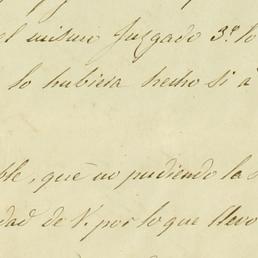 el mismo Juzgado 3.º lo
lo hubiera hecho si a
ble, que no pudiendo la
dad de V. por lo que llevo